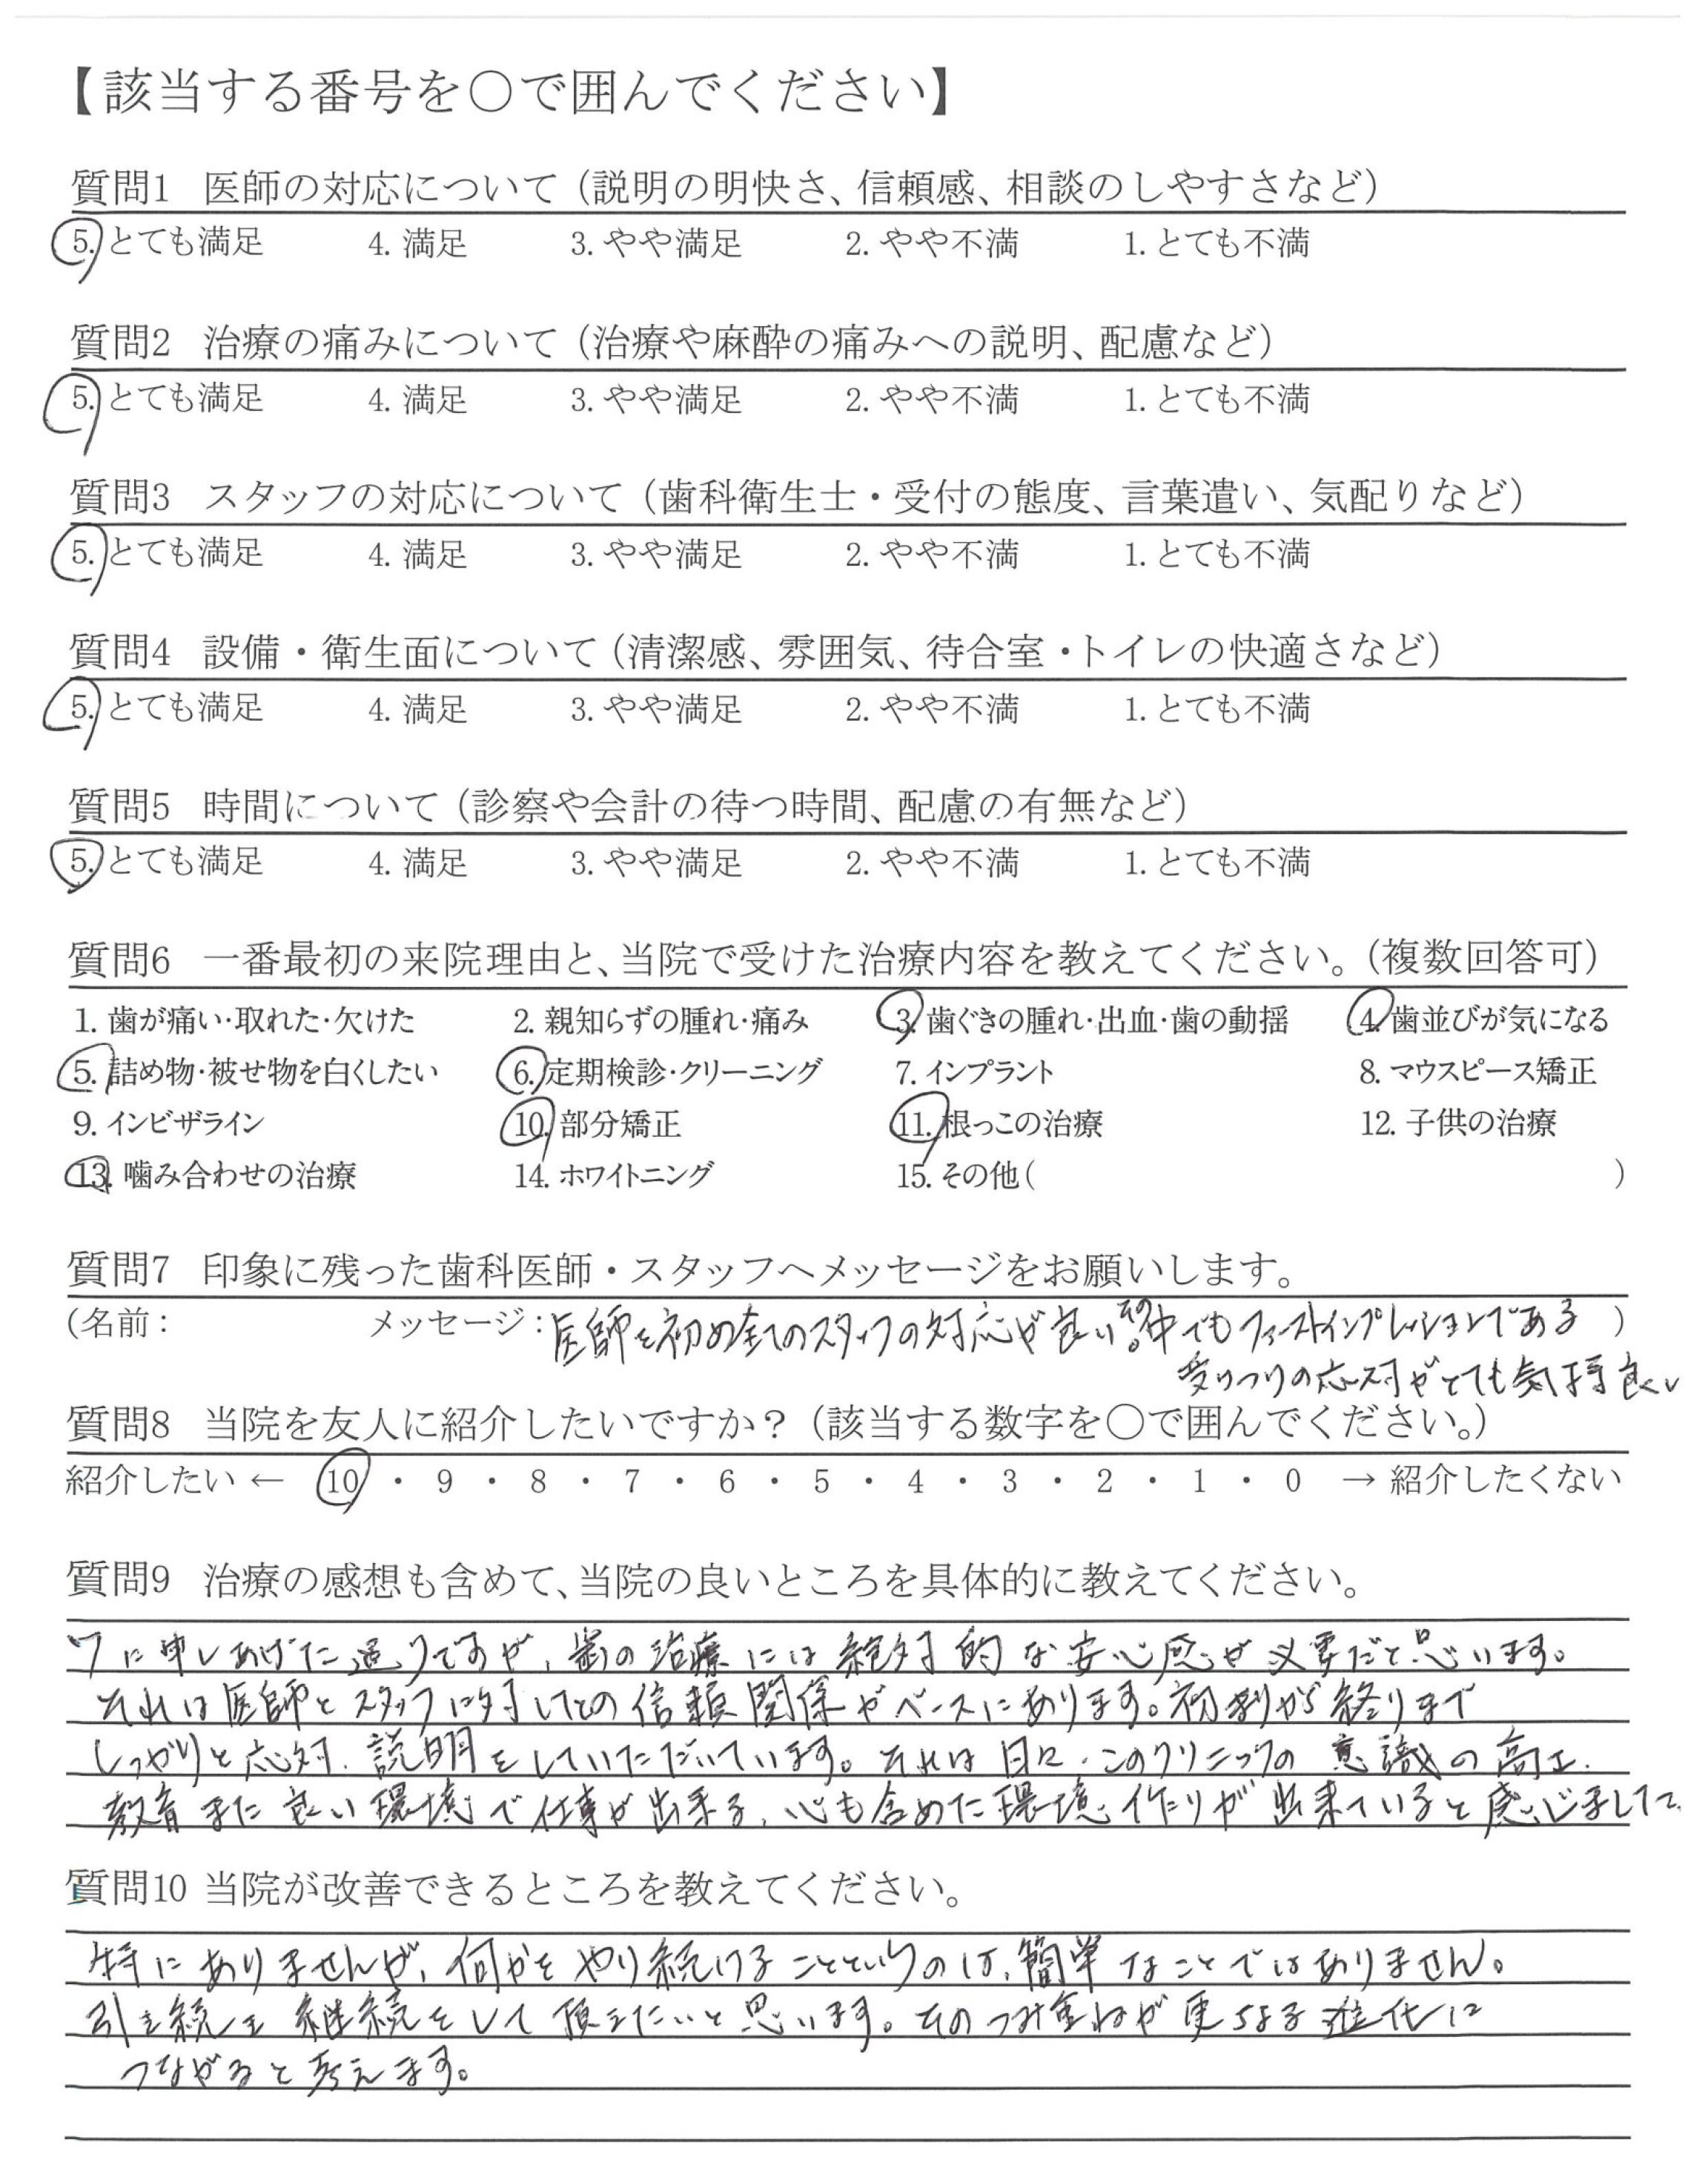 【該当する番号を〇で囲んでください】
質問1 医師の対応について（説明の明快さ、信頼感、相談のしやすさなど）
5. とても満足 4. 満足 3. やや満足 2. やや不満 1. とても不満
質問2 治療の痛みについて（治療や麻酔の痛みへの説明、配慮など）
5. とても満足 4. 満足 3. やや満足 2. やや不満 1. とても不満
質問3 スタッフの対応について（歯科衛生士・受付の態度、言葉遣い、気配りなど）
5. とても満足 4. 満足 3. やや満足 2. やや不満 1. とても不満
質問4 設備・衛生面について（清潔感、雰囲気、待合室・トイレの快適さなど）
5. とても満足 4. 満足 3. やや満足 2. やや不満 1. とても不満
質問5 時間について（診察や会計の待つ時間、配慮の有無など）
5. とても満足 4. 満足 3. やや満足 2. やや不満 1. とても不満
質問6 一番最初の来院理由と、当院で受けた治療内容を教えてください。（複数回答可）
1. 歯が痛い・取れた・欠けた 2. 親知らずの腫れ・痛み 3. 歯ぐきの腫れ・出血・歯の動揺 4. 歯並びが気になる
5. 詰め物・被せ物を白くしたい 6. 定期検診・クリーニング 7. インプラント 8. マウスピース矯正
9. インビザライン 10. 部分矯正 11. 根っこの治療 12. 子供の治療
13. 噛み合わせの治療 14. ホワイトニング 15. その他（ ）
質問7 印象に残った歯科医師・スタッフへメッセージをお願いします。
（名前： メッセージ：医師を初め全てのスタッフの対応が良い。その中でもファーストインプレッションである ）
受けつけの応対がとても気持良い
質問8 当院を友人に紹介したいですか？（該当する数字を〇で囲んでください。）
紹介したい ← 10 ・ 9 ・ 8 ・ 7 ・ 6 ・ 5 ・ 4 ・ 3 ・ 2 ・ 1 ・ 0 → 紹介したくない
質問9 治療の感想も含めて、当院の良いところを具体的に教えてください。
7に申しあげた通りですが、歯の治療には絶対的な安心感が必要だと思います。
それは医師とスタッフに対しての信頼関係がベースにあります。初診から終りまで
しっかりと応対、説明をしていただいています。それは日々、このクリニックの意識の高さ、
教育また良い環境で仕事が出来る、心も含めた環境作りが出来ていると感じまして
質問10 当院が改善できるところを教えてください。
特にありませんが、何かをやり続けることというのは、簡単なことではありません。
引き続き継続をして頂きたいと思います。そのつみ重ねが更なる進化に
つながると考えます。